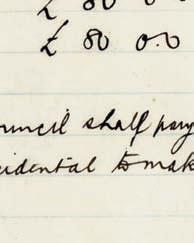 £ 80 0
£ 80 0.0
ouncil shall pay
cidental to mak